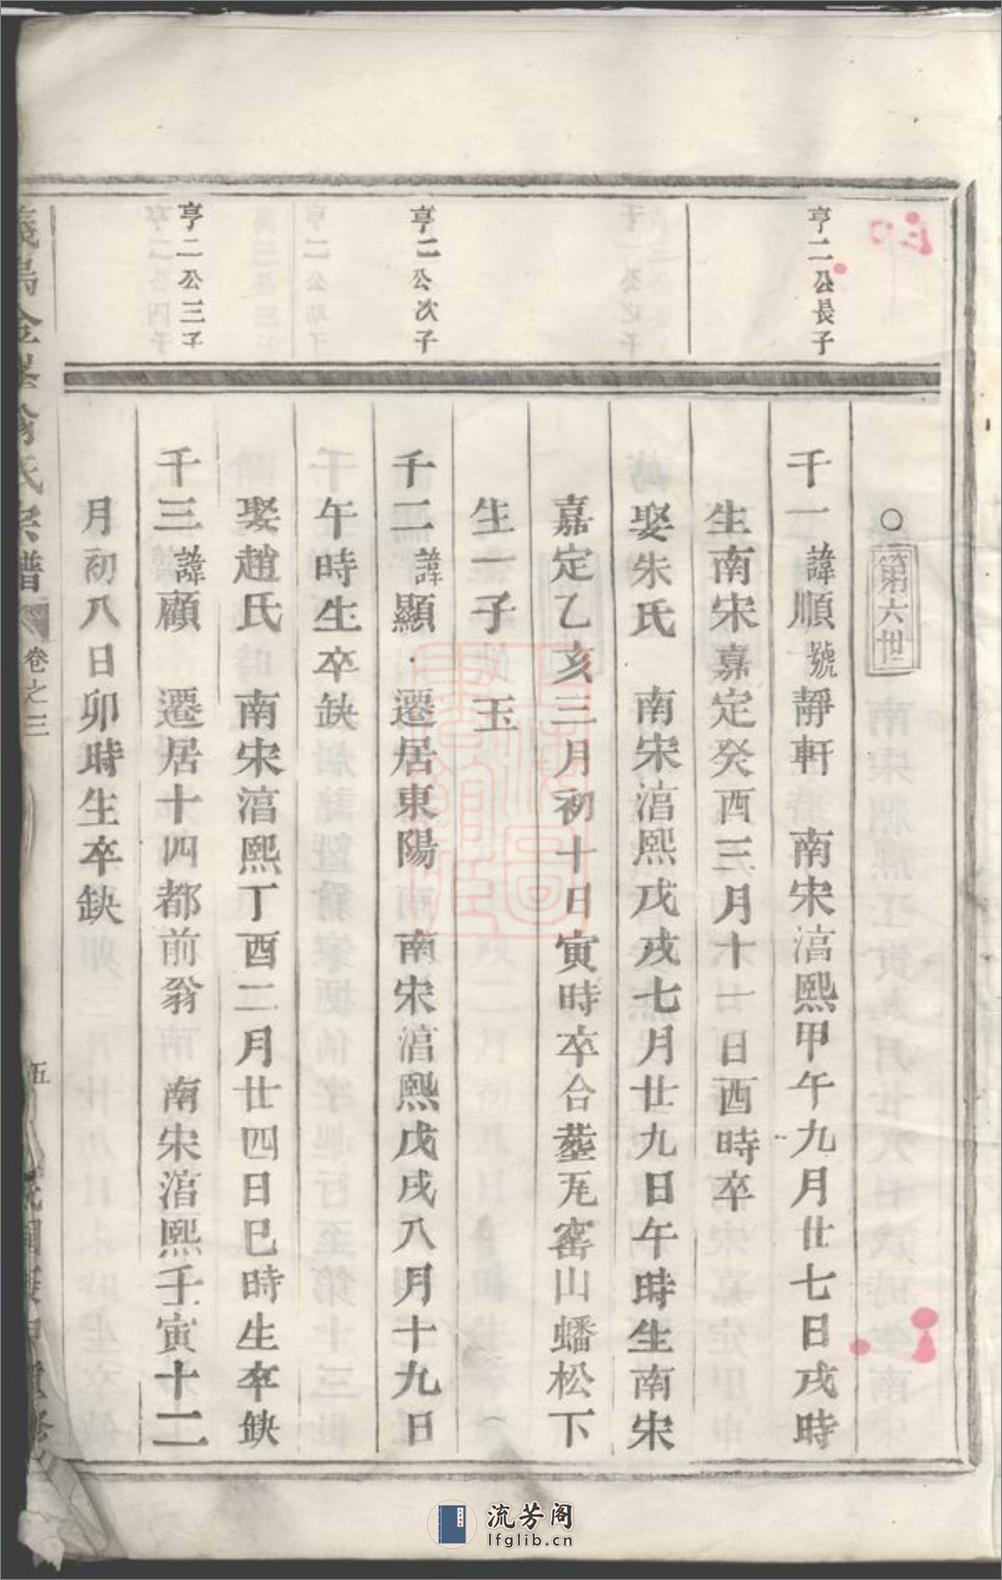 亨二公長子
亨二公次子
亨二公三子
○第六世
千一諱順號靜軒 南宋湻熙甲午九月廿七日戌時
生南宋嘉定癸酉三月十一日酉時卒
娶朱氏 南宋湻熙戊戌七月廿九日午時生南宋
嘉定乙亥三月初十日寅時卒合塟瓦窰山蟠松下
生一子 玉
千二諱顯 遷居東陽 南宋湻熙戊戌八月十九日
午時生卒缺
娶趙氏 南宋湻熙丁酉二月廿四日巳時生卒缺
千三諱顧 遷居十四都前翁 南宋湻熙壬寅十二
月初八日卯時生卒缺
氏宗譜 卷之三 五
流芳阁
lfglib.cn